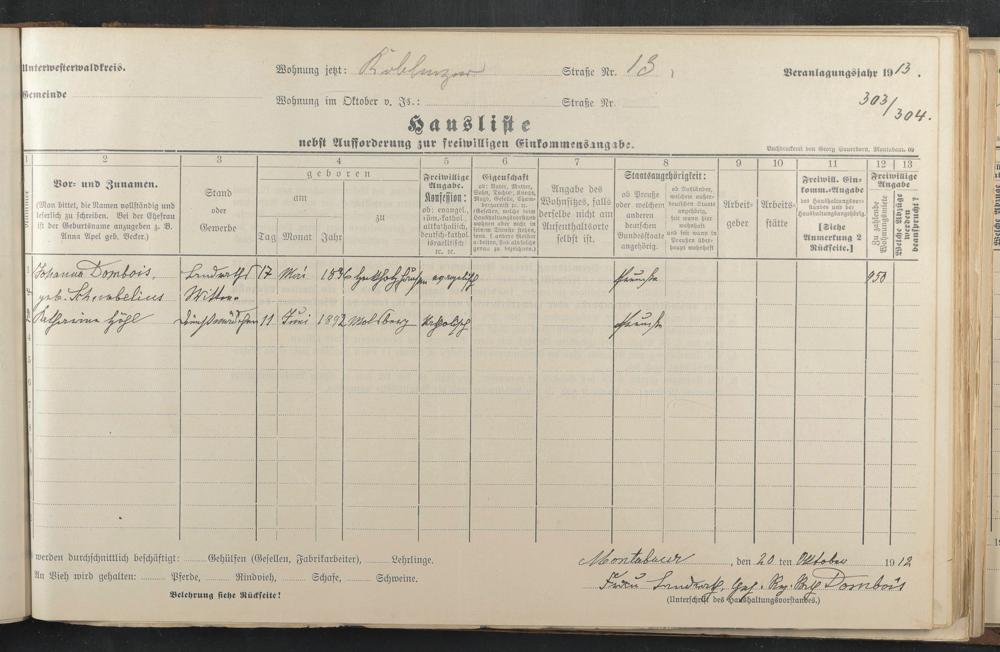 Unterwesterwaldkreis.
Wohnung jetzt: Koblenzer Straße Nr. 13,
Veranlagungsjahr 1913.
Gemeinde
Wohnung im Oktober v. Js.: Straße Nr.
303/304.
Hausliste
nebst Aufforderung zur freiwilligen Einkommensangabe.
Buchdruckerei von Georg Sauerborn, Montabaur.
1 2 3 4 5 6 7 8 9 10 11 12 13
Vor- und Zunamen.
(Man bittet, die Namen vollständig und
leserlich zu schreiben. Bei der Ehefrau
ist der Geburtsname anzugeben z. B.
Anna Apel geb. Becker.)
Stand
oder
Gewerbe
geboren
am
zu
Tag Monat Jahr
Freiwillige
Angabe.
Konfession:
ob: evangel.,
röm.-kathol.,
altkatholisch,
deutsch-kathol.
israelitisch
ꝛc. ꝛc.
Eigenschaft
ob: Vater, Mutter,
Sohn, Tochter, Knecht,
Magd, Geselle,
Angabe des
Wohnsitzes, falls
derselbe nicht am
Aufenthaltsorte
selbst ist.
Staatsangehörigkeit:
ob Preuße
oder welchem
anderen
deutschen
Bundesstaate
angehörig.
ob Ausländer,
welchem außer-
deutschen Staate
angehörig,
seit wann hier
wohnhaft
und
seit wann in
Preußen über-
wohnhaft
Arbeit-
geber
Arbeits-
stätte
Freiwill. Ein-
komm.-Angabe
des Haushaltungsvor-
standes und der
Haushaltungsangehörig.
[Siehe
Anmerkung 2
Rückseite.]
Freiwillige
Angabe
Zu zahlende
Wohnungsmiete
Welche Abzüge
werden
beansprucht?
Johanna Dombois, Landraths 17 Mai 1836 evangelisch Preuße 950
geb. Schnabelius Wittwe
Katharina Höhl Dienstmädchen 11 Juni 1892 Molsberg katholisch Preuße
werden durchschnittlich beschäftigt: Gehülfen (Gesellen, Fabrikarbeiter), Lehrlinge.
An Vieh wird gehalten: Pferde, Rindvieh, Schafe, Schweine.
Belehrung siehe Rückseite!
Montabaur, den 20 ten Oktober 1912
Frau Landrath, Geh. Reg. Rath Dombois
(Unterschrift des Haushaltungsvorstandes.)